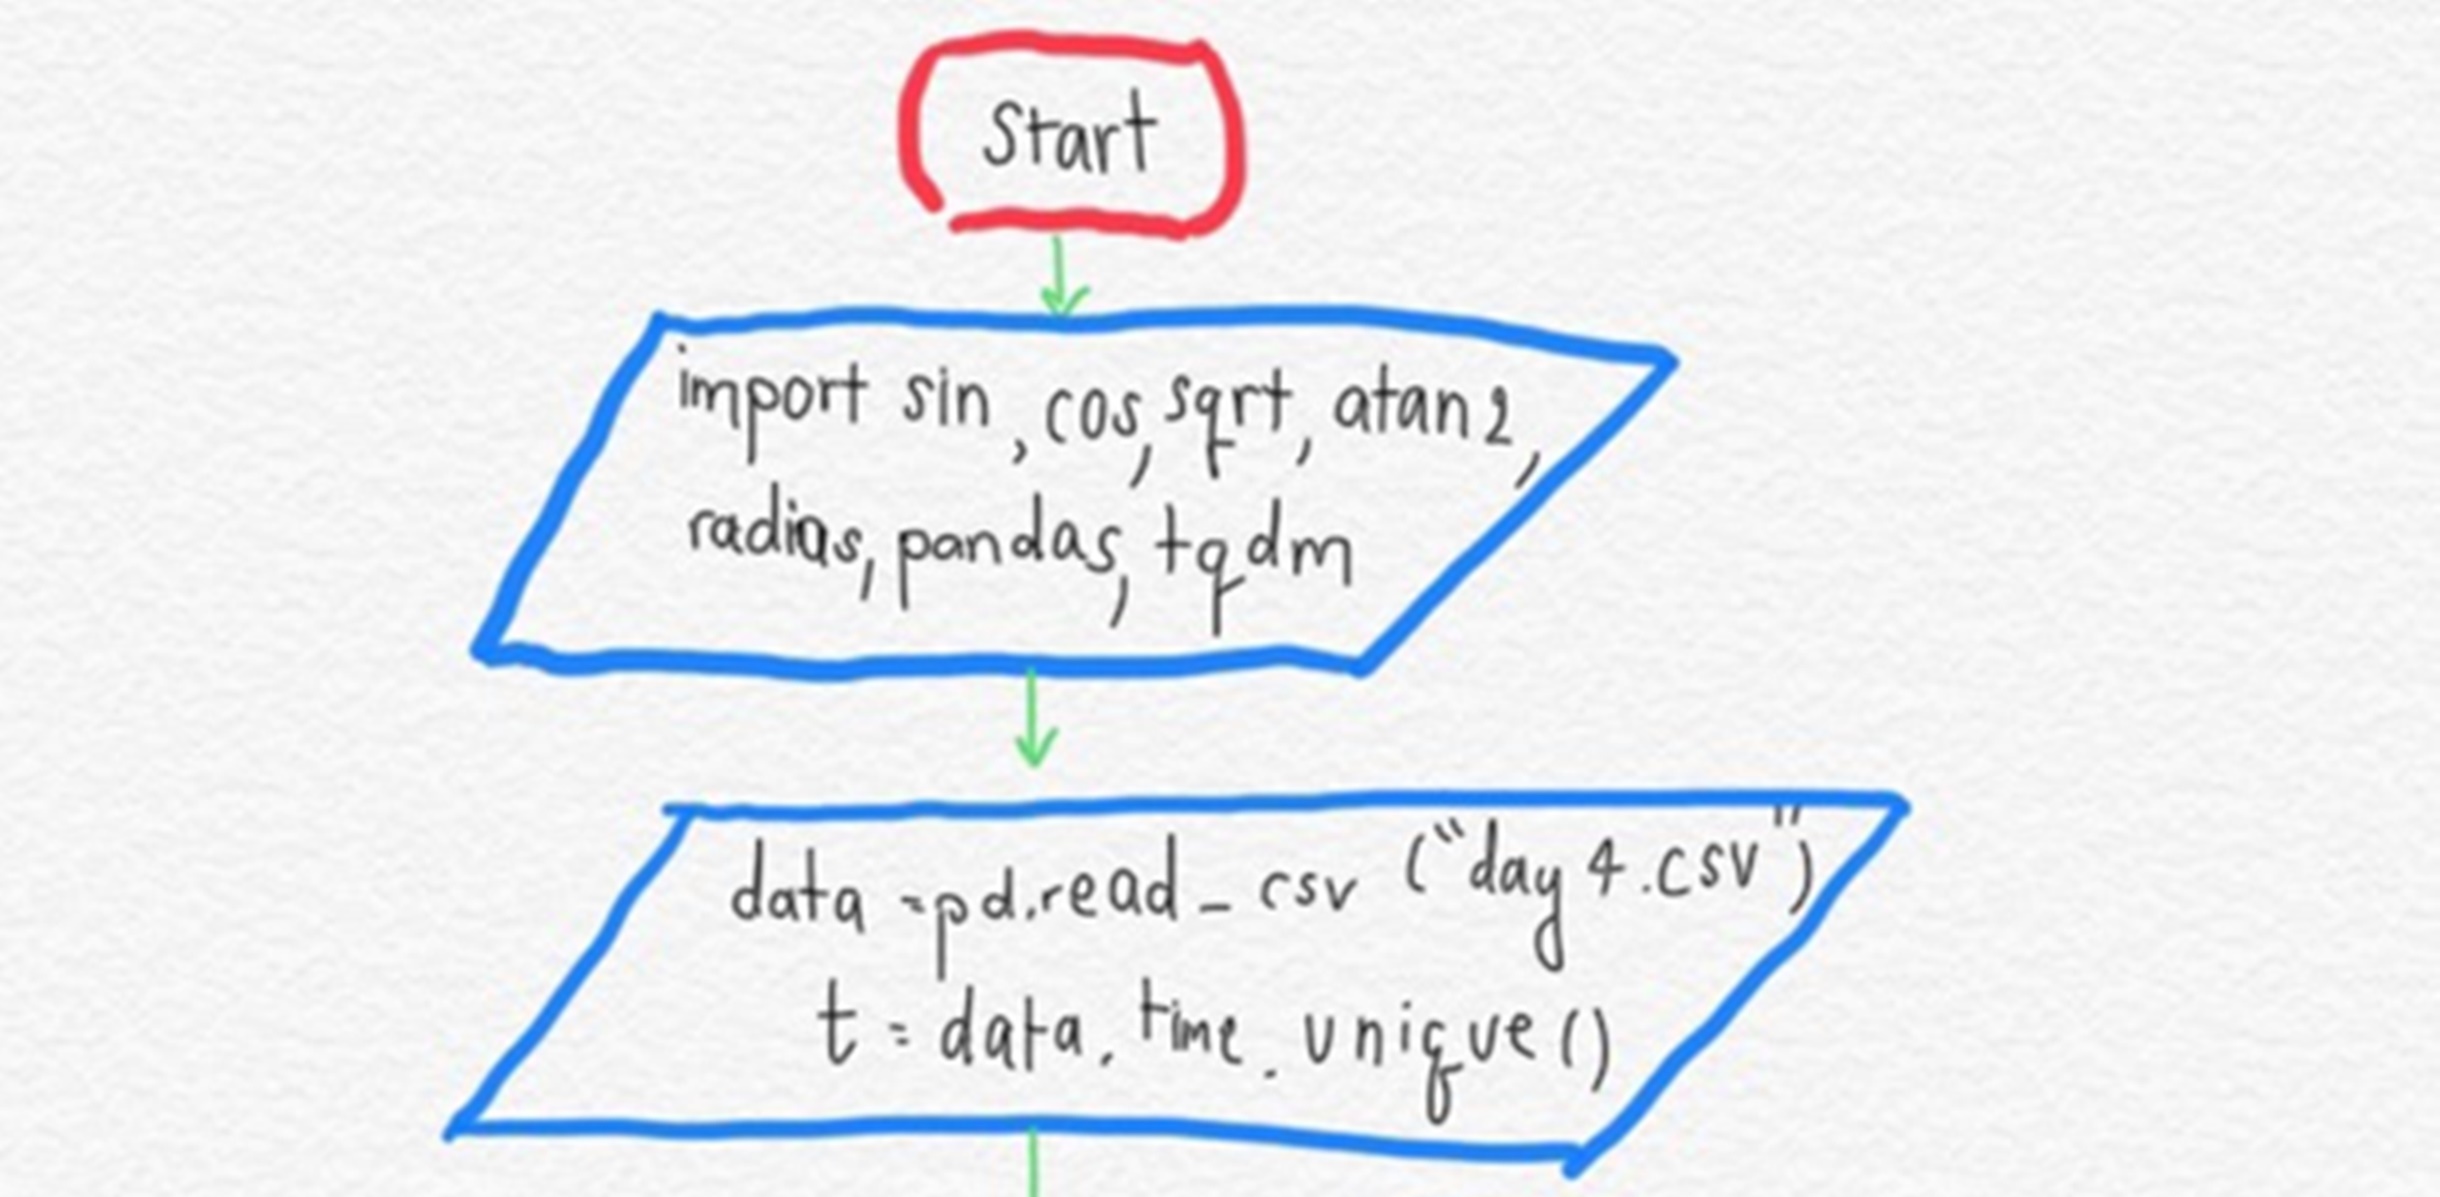 Start
import sin, cos, sqrt, atan2,
radias, pandas, tqdm
data = pd.read_csv ("day4.csv")
t = data.time.unique()